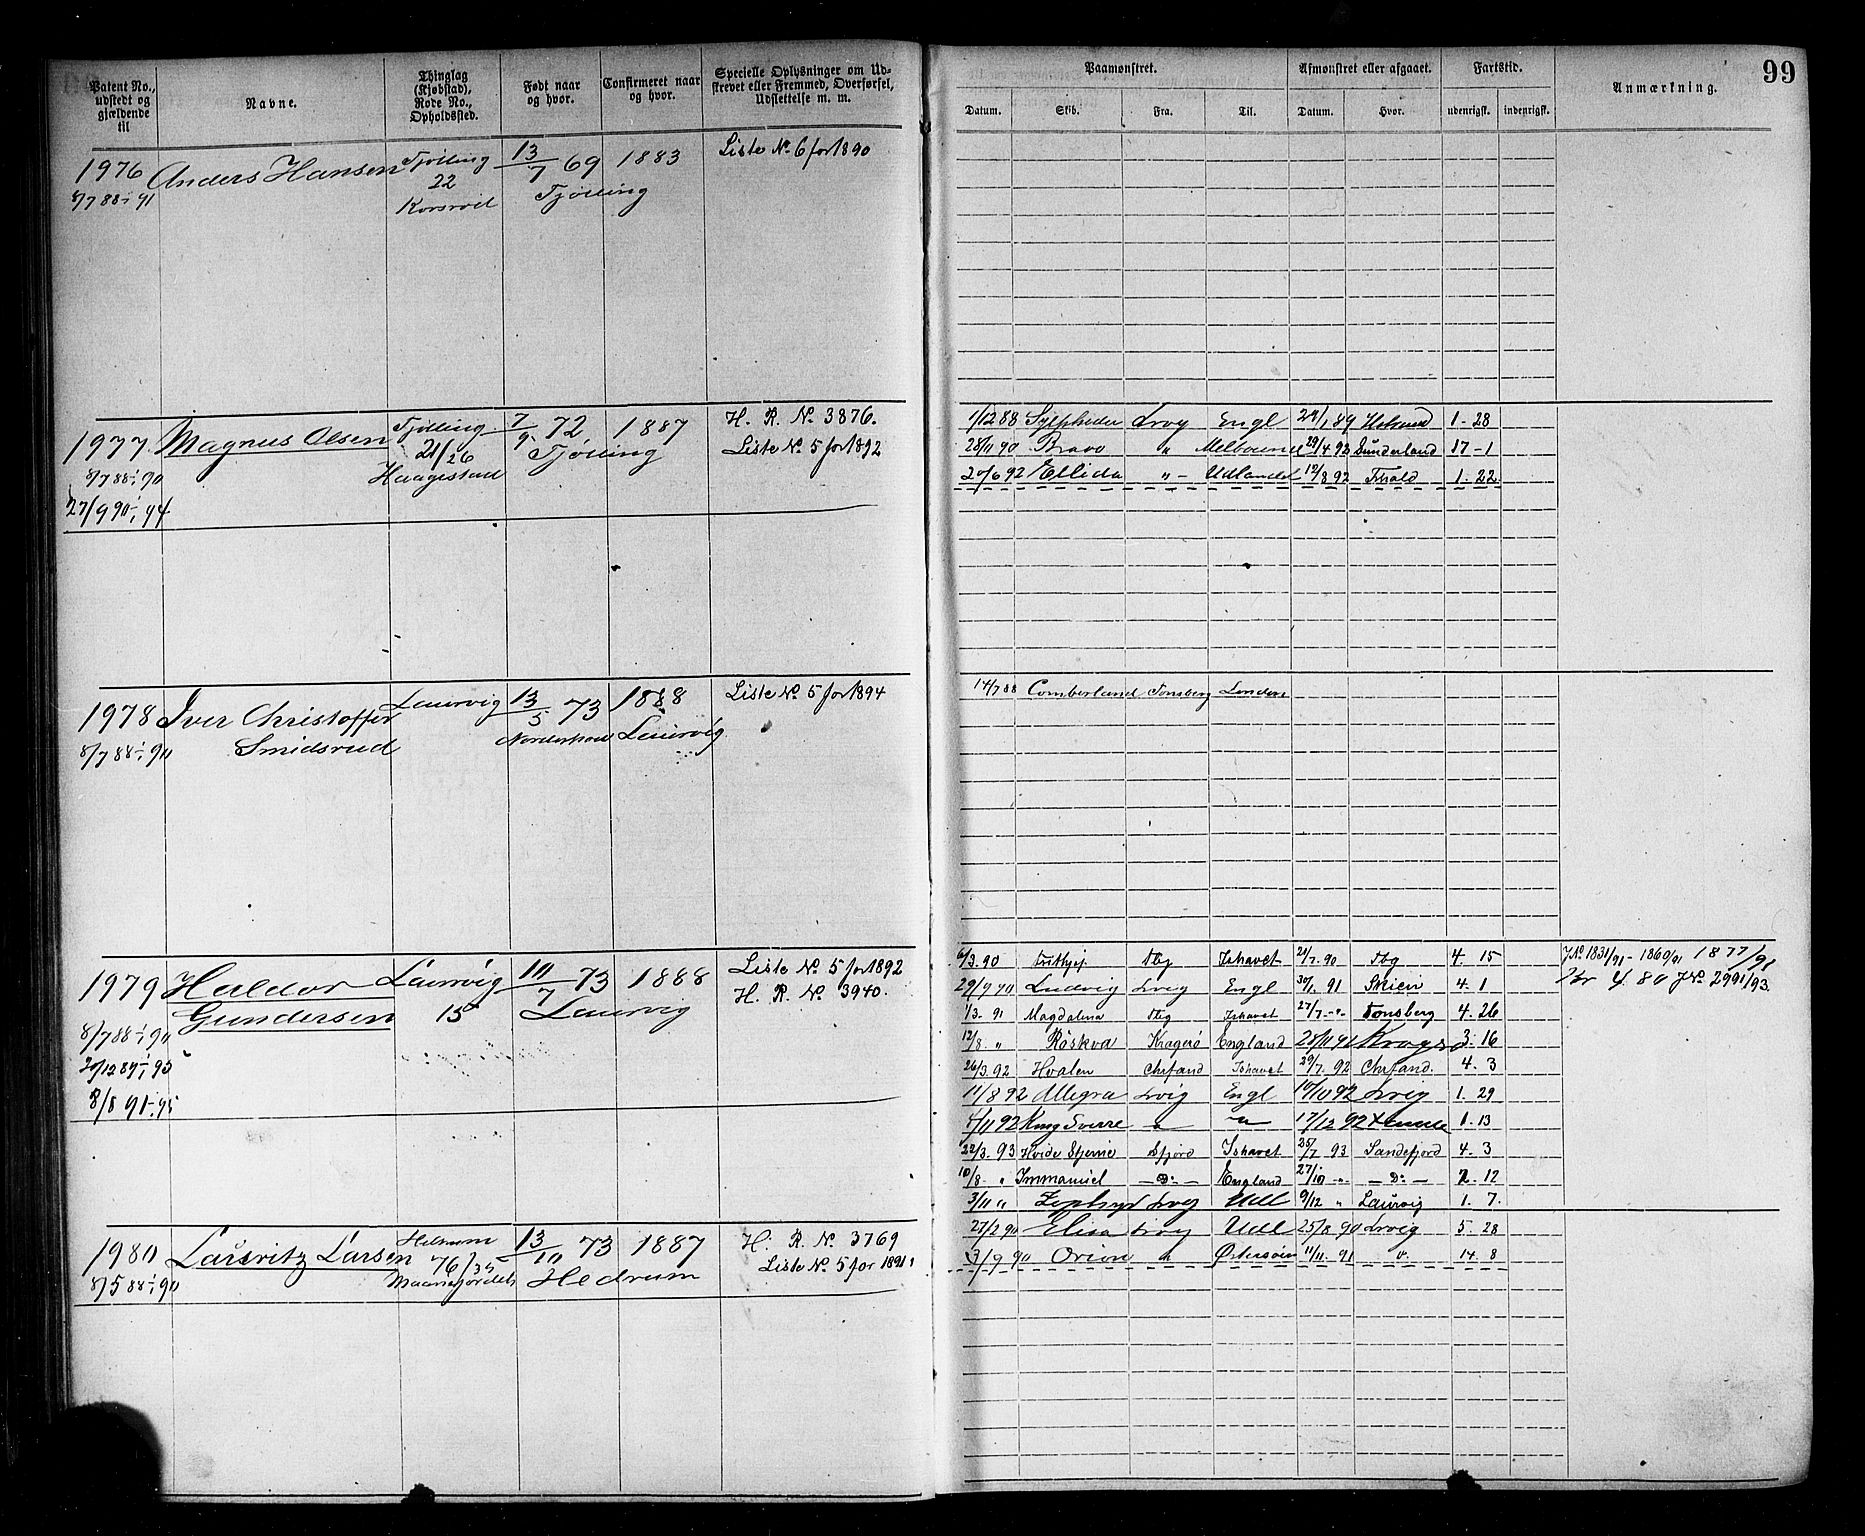 Patent No., udstedt og gjældende til
Navne.
Thinglag (Kjøbstad), Rode No., Opholdssted.
Født naar og hvor.
Confirmeret naar og hvor.
Specielle Oplysninger om Udskrevet eller Fremmed, Overførsel, Udslettelse m. m.
Paamønstret.
Afmønstret eller afgaaet.
Fartstid.
99
Datum. Skib. Fra. Til. Datum. Hvor. udenrigsk. indenrigsk.
Anmærkning.
1976 Anders Hansen Tjølling 13/7 69 1883 Liste No. 6 for 1890
8/7 88-1/1 91 22 Tjølling
Korsvik
1977 Magnus Olsen Tjølling 7/9 72 1887 H. R. No. 3876.
21/26 Tjølling Liste No. 5 for 1892
8/7 88-1/1 90 Haagestad
27/9 90-1/1 94
1/12 88 Sylphiden Lvig Engl 29/1 89 1-28
28/11 90 Bravo " Melbourne 29/4 92 Sunderland 17-1
20/6 92 Ellida "- Udlandet 12/8 92 Frhald 1-22
1978 Iver Christoffer Laurvig 13/5 73 1888 Liste No. 5 for 1894
8/7 88-1/1 90 Smidsrud Laurvig
14/7 88 Comberland Tonsberg London
1979 Haldor Laurvig 10/7 73 1888 Liste No. 5 for 1892
Gundersen 15 Laurvig H. R. No. 3940.
8/7 88-1/1 90
20/12 89-1/1 93
8/8 91-95
6/3 90 Tbg Ishavet 21/7 90 Tbg 4. 15 J No 1831/91 - 1860/91 1877/91
29/9 90 Ludvig Lvig Engl 30/1 91 Skien 4. 1 J No. 2991/93.
1/3 91 Magdalena Tbg Ishavet 27/7 -"- Tonsberg 4. 26
12/8 " Røskva Kragerø England 28/11 91 Kragerø 3. 16
26/3 92 Hvalen Chrsand Ishavet 29/7 92 Chrsand. 4. 3
11/8 92 Allegra Lvig Engl 10/10 92 Lvig 1. 29
4/11 92 Kong Sverre " " 17/12 92 1. 13
22/3 93 Hvide Stjerne Sfjord Ishavet 25/7 93 Sandefjord 4. 3
10/8 " Immanuel -Do- England 27/10 -"- -Do- 2. 12
3/11 " Zephyr Lvig Udl 9/12 " Laurvig 1. 7.
1980 Lauritz Larsen Hedrum 13/10 73 1887 H. R. No. 3769
8/5 88-1/1 90 76/35 Hedrum Liste No. 5 for 1891
27/2 90 Elisa Lvig Udl 25/8 90 Lvig 5. 28
3/9 90 Orion " Østersøen 11/11 91 " 14. 8